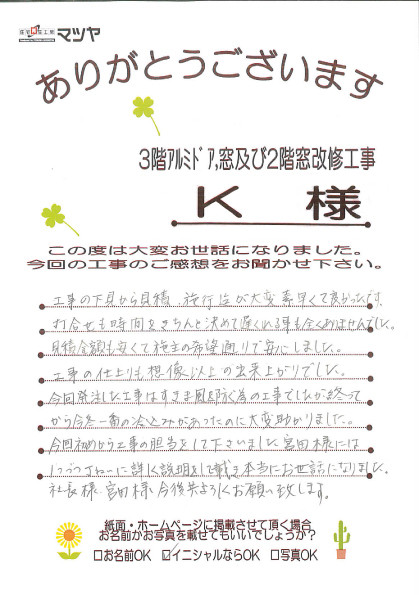 マツヤ
ありがとうございます
3階ｱﾙﾐﾄﾞｱ,窓及び2階窓改修工事
K 様
この度は大変お世話になりました。
今回の工事のご感想をお聞かせ下さい。
工事の下見から見積、施行迄が大変素早くて良かったです。
打合せも時間をきちんと決めて遅くれる事も全くありませんでした。
見積金額も安くて施主の希望通りで安心しました。
工事の仕上りも想像以上の出来上がりでした。
今回発注した工事はすきま風を防ぐ為の工事でしたが終って
から今冬一番の冷込みがあったのに大変助かりました。
今回初めから工事の担当をして下さいました宮田様には
1つ1つていねいに詳しく説明をして戴き本当にお世話になりました。
社長様、宮田様今後共よろしくお願い致します。
紙面・ホームページに掲載させて頂く場合
お名前かお写真を載せてもいいでしょうか？
□お名前OK ☑イニシャルならOK □写真OK